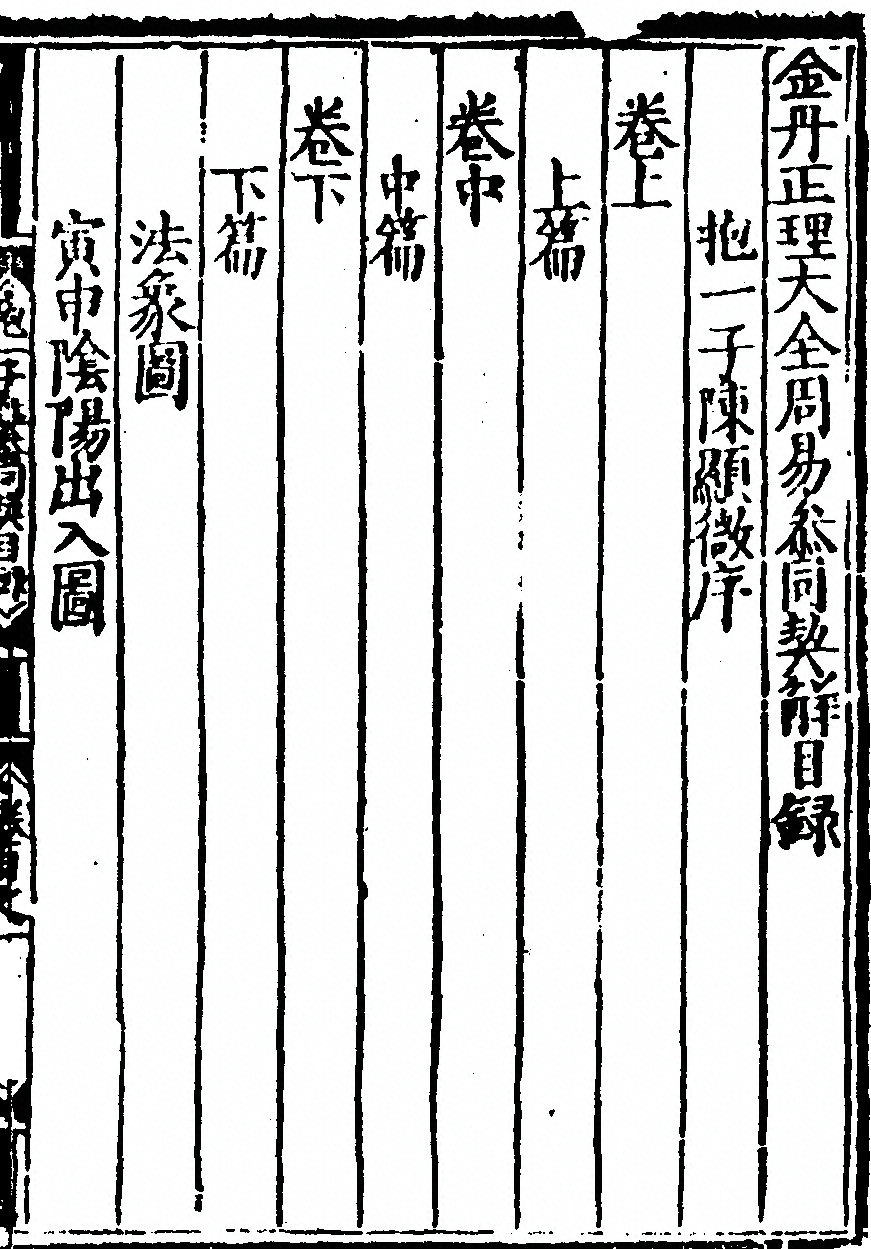 金丹正理大全周易叅同契解目録
抱一子陳顯微序
卷上
上篇
卷中
中篇
卷下
下篇
法象圖
寅申陰陽出入圖